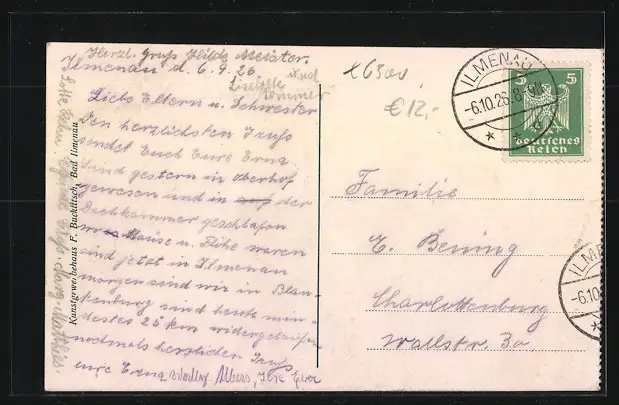 Herzl. Gruß Hilde Meister.
Ilmenau d. 6.9.26
Liselotte
Liebe Eltern u. Schwester
Den herzlichsten Gruß
sendet Euch Eure Erna
Sind gestern in Oberhof
gewesen und in der
Dachkammer geschlafen
Mäuse u. Flöhe waren
sind jetzt in Ilmenau
morgen sind wir in Blan-
kenburg sind heute min-
destes 25 km widergelaufen
nochmals herzlichen Gruß
eure Erna
Kunstgewerbehaus F. Bucklitsch, Bad Ilmenau
€12,-
ILMENAU
-6.10.26.8-9
5 5
Deutsches
Reich
Familie
E. Bening
Charlottenburg
Wallstr. 30
ILMEN
-6.10